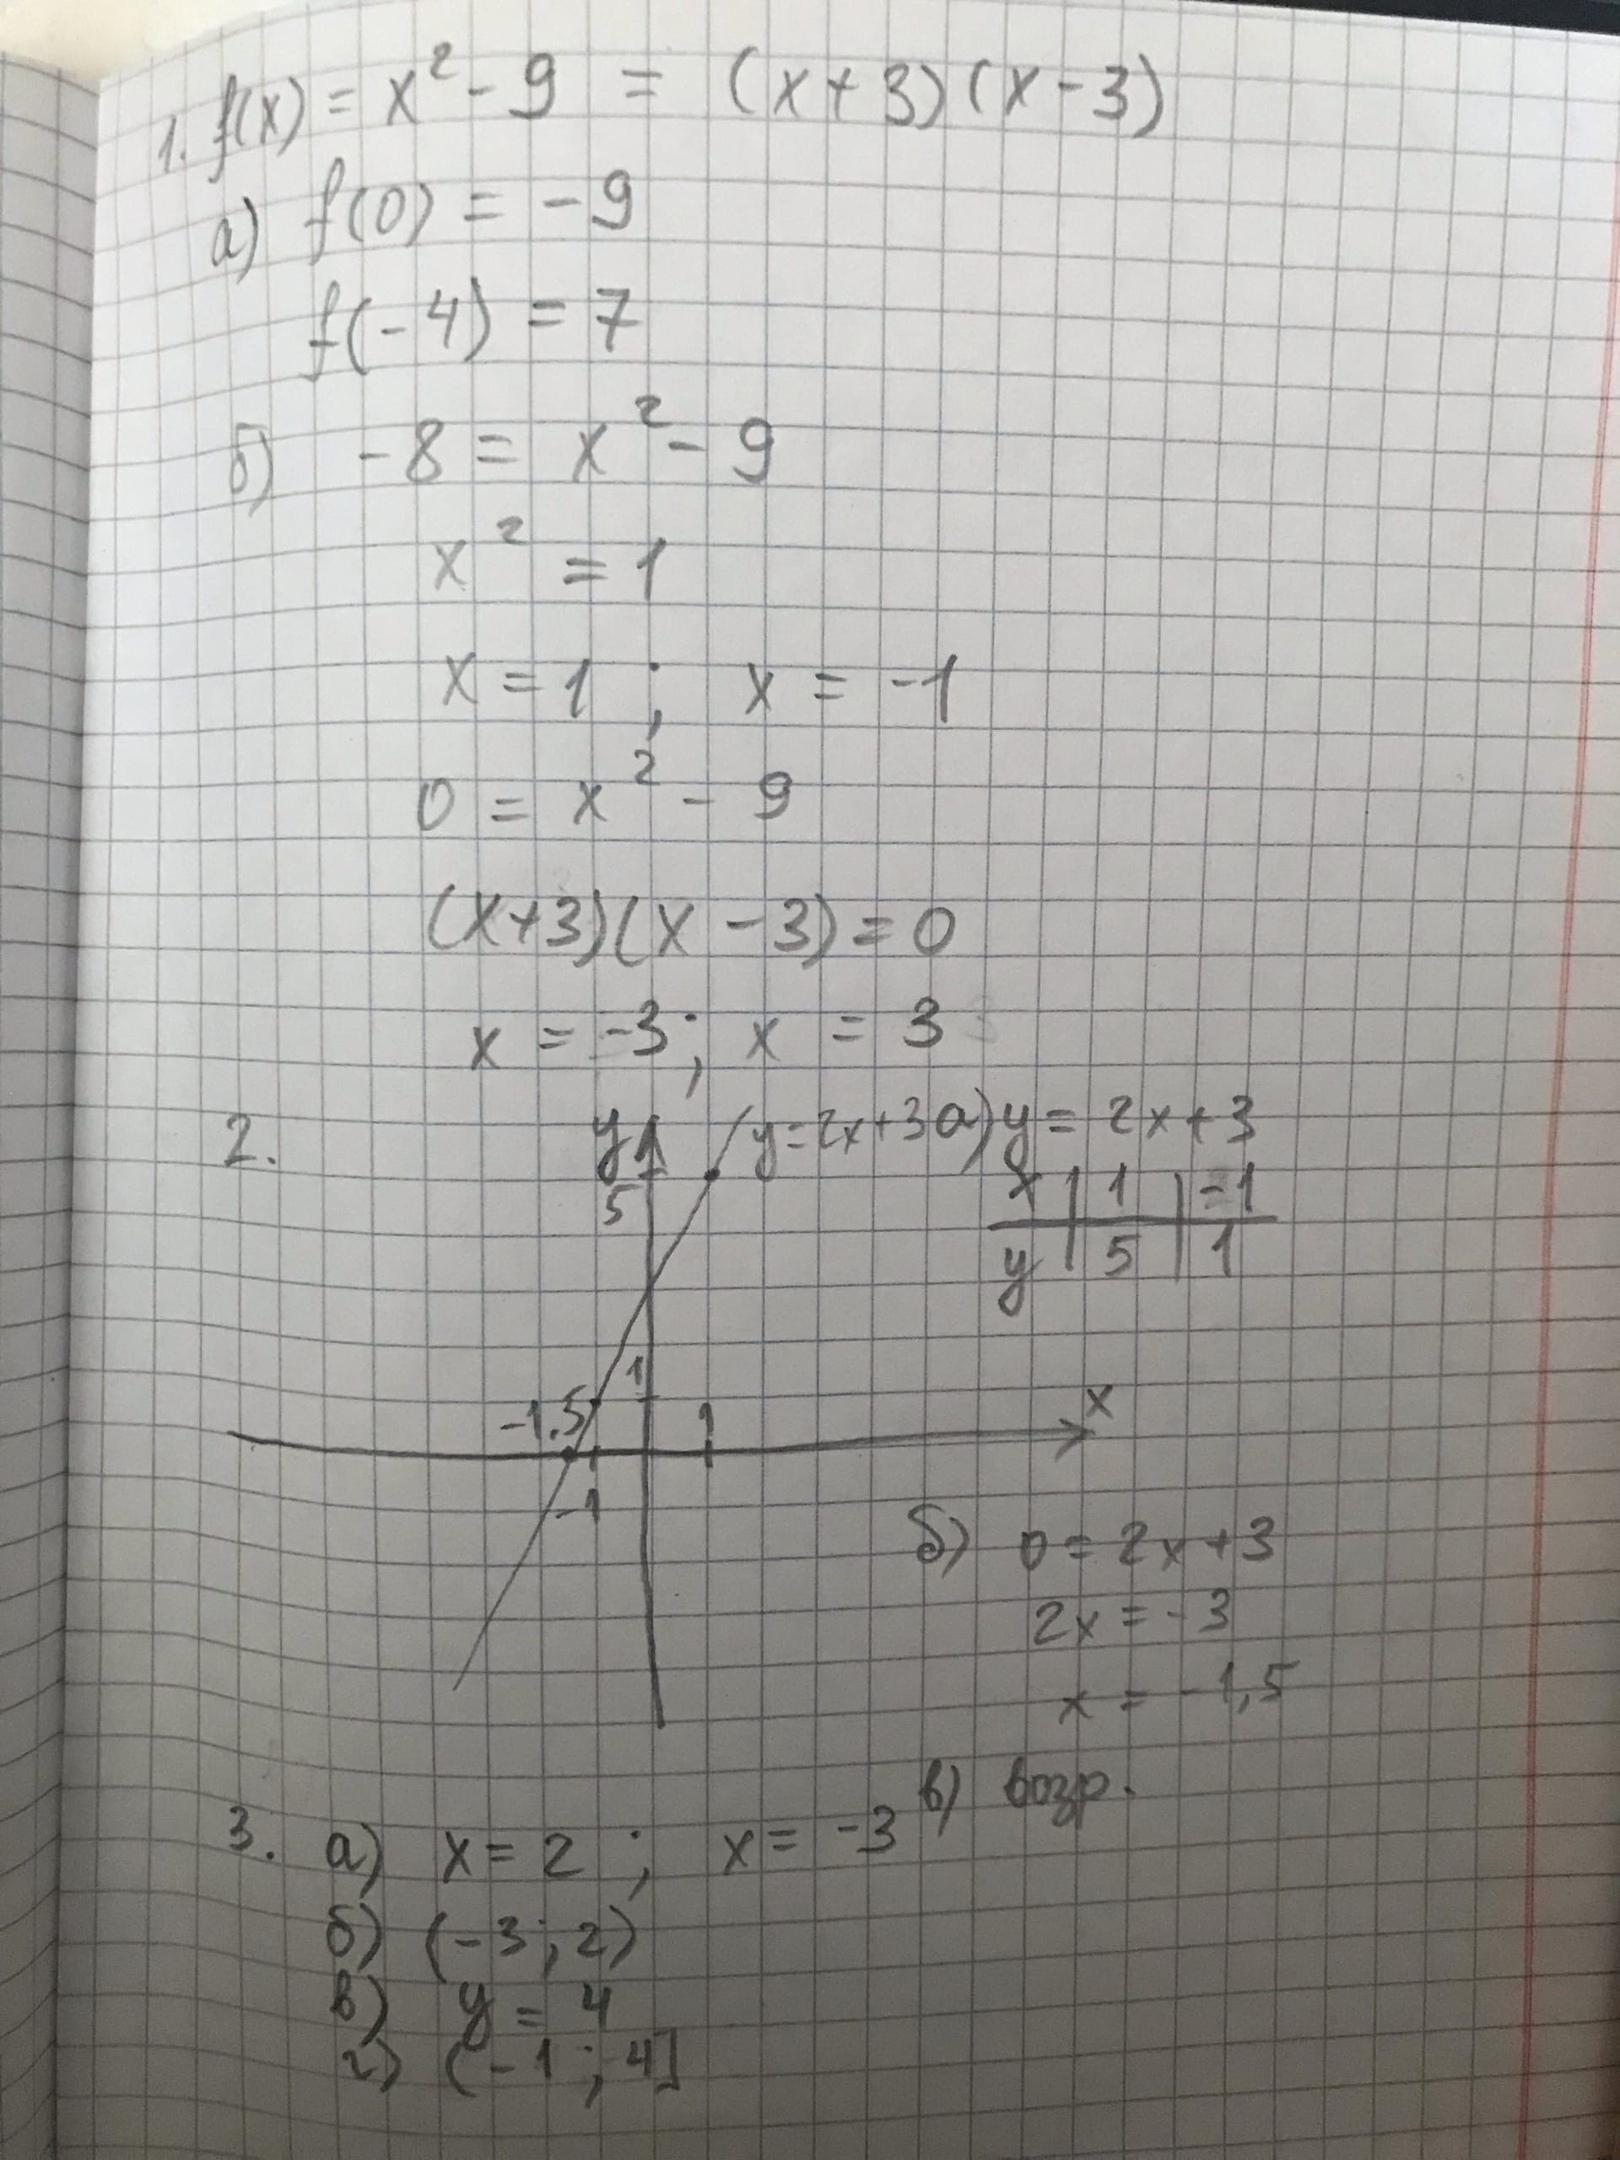 1. f(x) = x² - 9 = (x+3)(x-3)
а) f(0) = -9
f(-4) = 7
б) -8 = x² - 9
x² = 1
x = 1 ; x = -1
0 = x² - 9
(x+3)(x-3) = 0
x = -3; x = 3
2.
y
y=2x+3
5
1
-1.5
1
x
-1
а) y = 2x+3
x | 1 | -1
y | 5 | 1
б) 0 = 2x+3
2x = -3
x = -1,5
в) возр.
3. а) x = 2 ; x = -3
б) (-3 ; 2)
в) y = 4
г) (-1 ; 4]